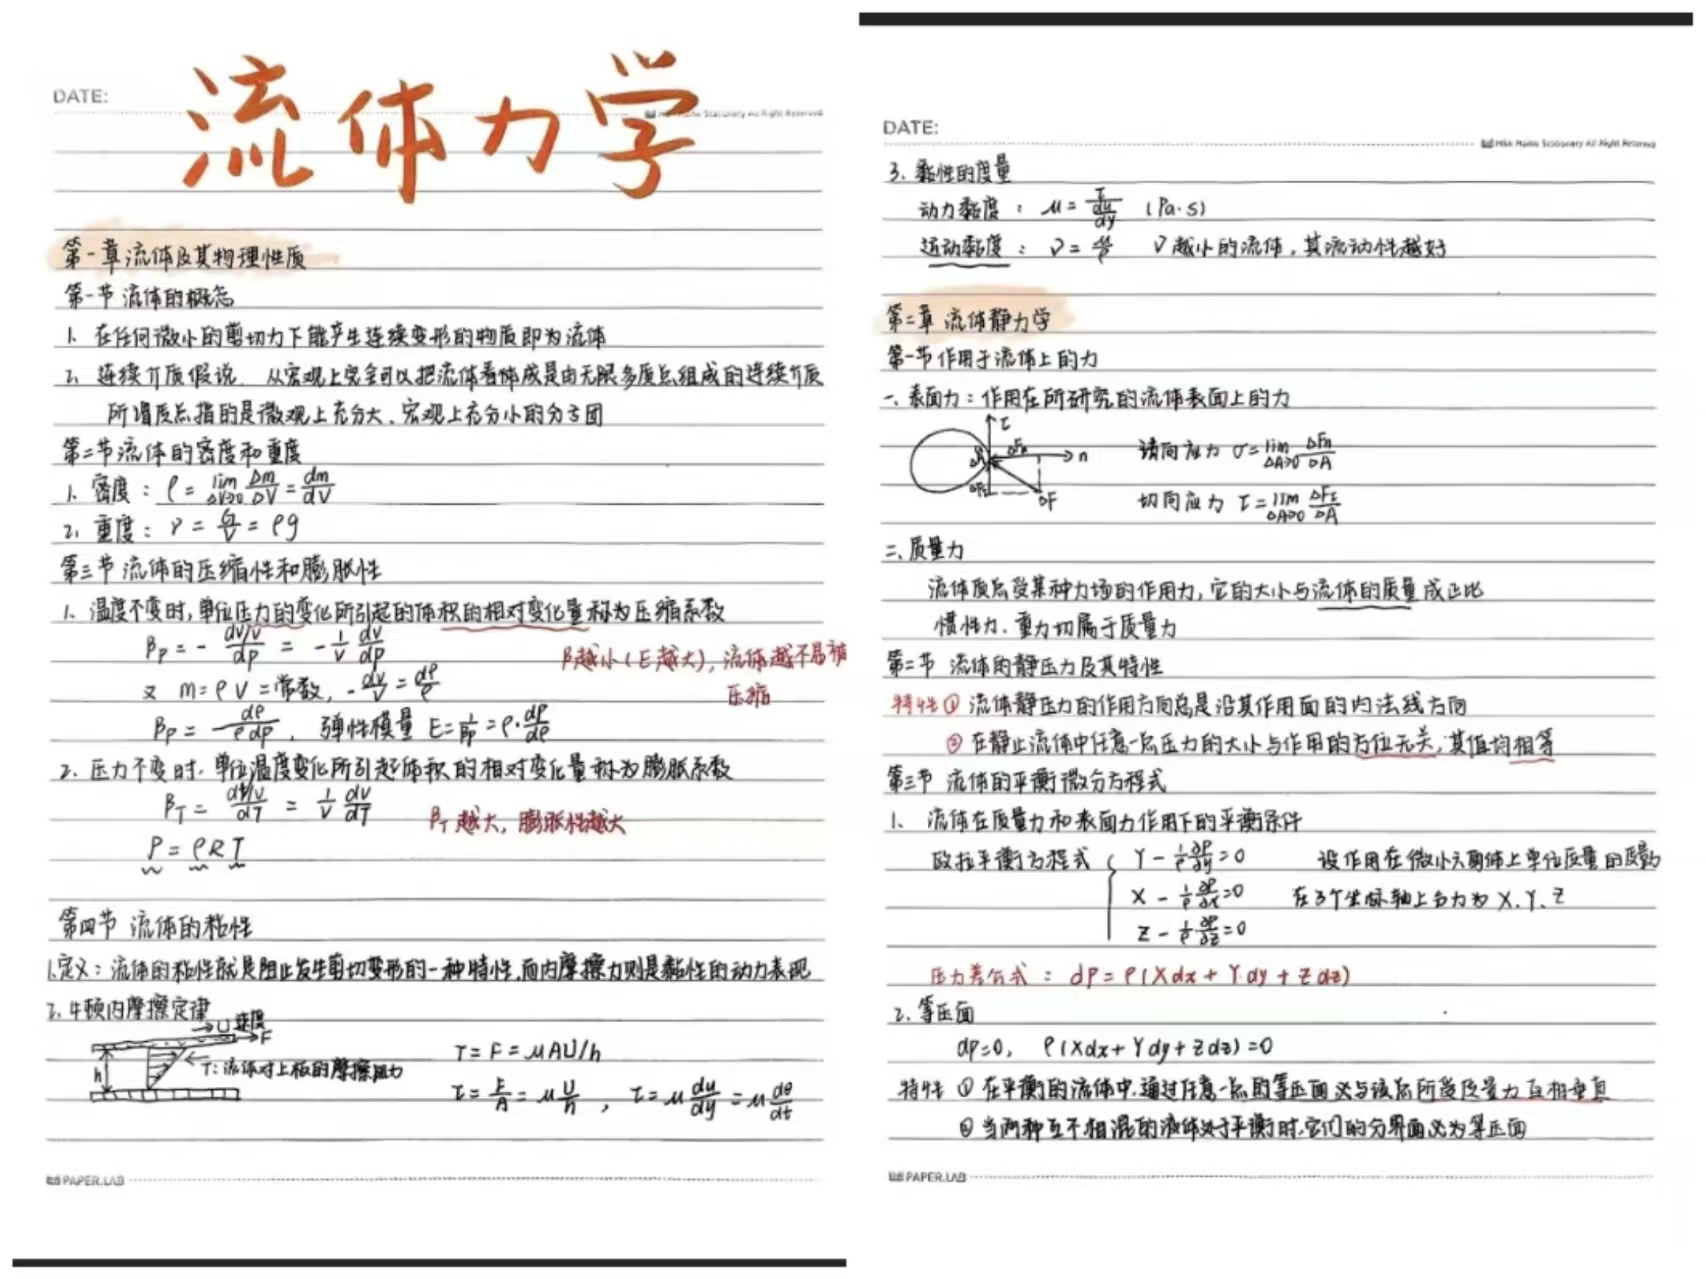 DATE:
流体力学
第一章 流体及其物理性质
第一节 流体的概念
1. 在任何微小的剪切力下能产生连续变形的物质即为流体
2. 连续介质假说. 从宏观上完全可以把流体看作成是由无限多质点组成的连续介质
所谓质点指的是微观上充分大、宏观上充分小的分子团
第二节 流体的密度和重度
1. 密度: ρ = lim ΔV→0 Δm/ΔV = dm/dV
2. 重度: γ = G/V = ρg
第三节 流体的压缩性和膨胀性
1. 温度不变时, 单位压力的变化所引起的体积的相对变化量称为压缩系数
βp = - (dV/V)/dp = - 1/V dV/dp
β越小(E越大), 流体越不易被
压缩
又 m = ρV = 常数, - dV/V = dρ/ρ
βp = dρ/ρdp , 弹性模量 E = 1/βp = ρ·dp/dρ
2. 压力不变时, 单位温度变化所引起体积的相对变化量称为膨胀系数
βT = (dV/V)/dT = 1/V dV/dT
βT 越大, 膨胀性越大
P = ρRT
第四节 流体的粘性
1.定义: 流体的粘性就是阻止发生剪切变形的一种特性,而内摩擦力则是黏性的动力表现
2.牛顿内摩擦定律
U 速度
F
h
T:流体对上板的摩擦阻力
T = F = μAU/h
τ = F/A = μ U/h , τ = μ du/dy = μ dθ/dt
PAPER.LAB
DATE:
Stationery All Right Reserved
3. 黏性的度量
动力黏度: μ = τ/(du/dy) (Pa·s)
运动黏度: ν = μ/ρ ν越小的流体, 其流动性越好
第二章 流体静力学
第一节 作用于流体上的力
一. 表面力: 作用在所研究的流体表面上的力
τ
ΔFn
n
ΔA
ΔFτ
ΔF
向应力 σ = lim ΔA→0 ΔFn/ΔA
切向应力 τ = lim ΔA→0 ΔFτ/ΔA
二、质量力
流体质点受某种力场的作用力, 它的大小与流体的质量成正比
惯性力、重力切属于质量力
第二节 流体的静压力及其特性
特性 ① 流体静压力的作用方向总是沿其作用面的内法线方向
② 在静止流体中任意一点压力的大小与作用的方位无关,其值均相等
第三节 流体的平衡微分方程式
1. 流体在质量力和表面力作用下的平衡条件
欧拉平衡方程式 { Y - 1/ρ ∂P/∂y = 0 设作用在微小六面体上单位质量的质量力
X - 1/ρ ∂P/∂x = 0 在3个坐标轴上分力为 X、Y、Z
Z - 1/ρ ∂P/∂z = 0
压力差公式: dp = ρ(Xdx + Ydy + Zdz)
2. 等压面
dp=0, ρ(Xdx + Ydy + Zdz) = 0
特性 ① 在平衡的流体中,通过任意一点的等压面必与该点所受质量力互相垂直
② 当两种互不相混的液体处于平衡时,它们的分界面必为等压面
PAPER.LAB